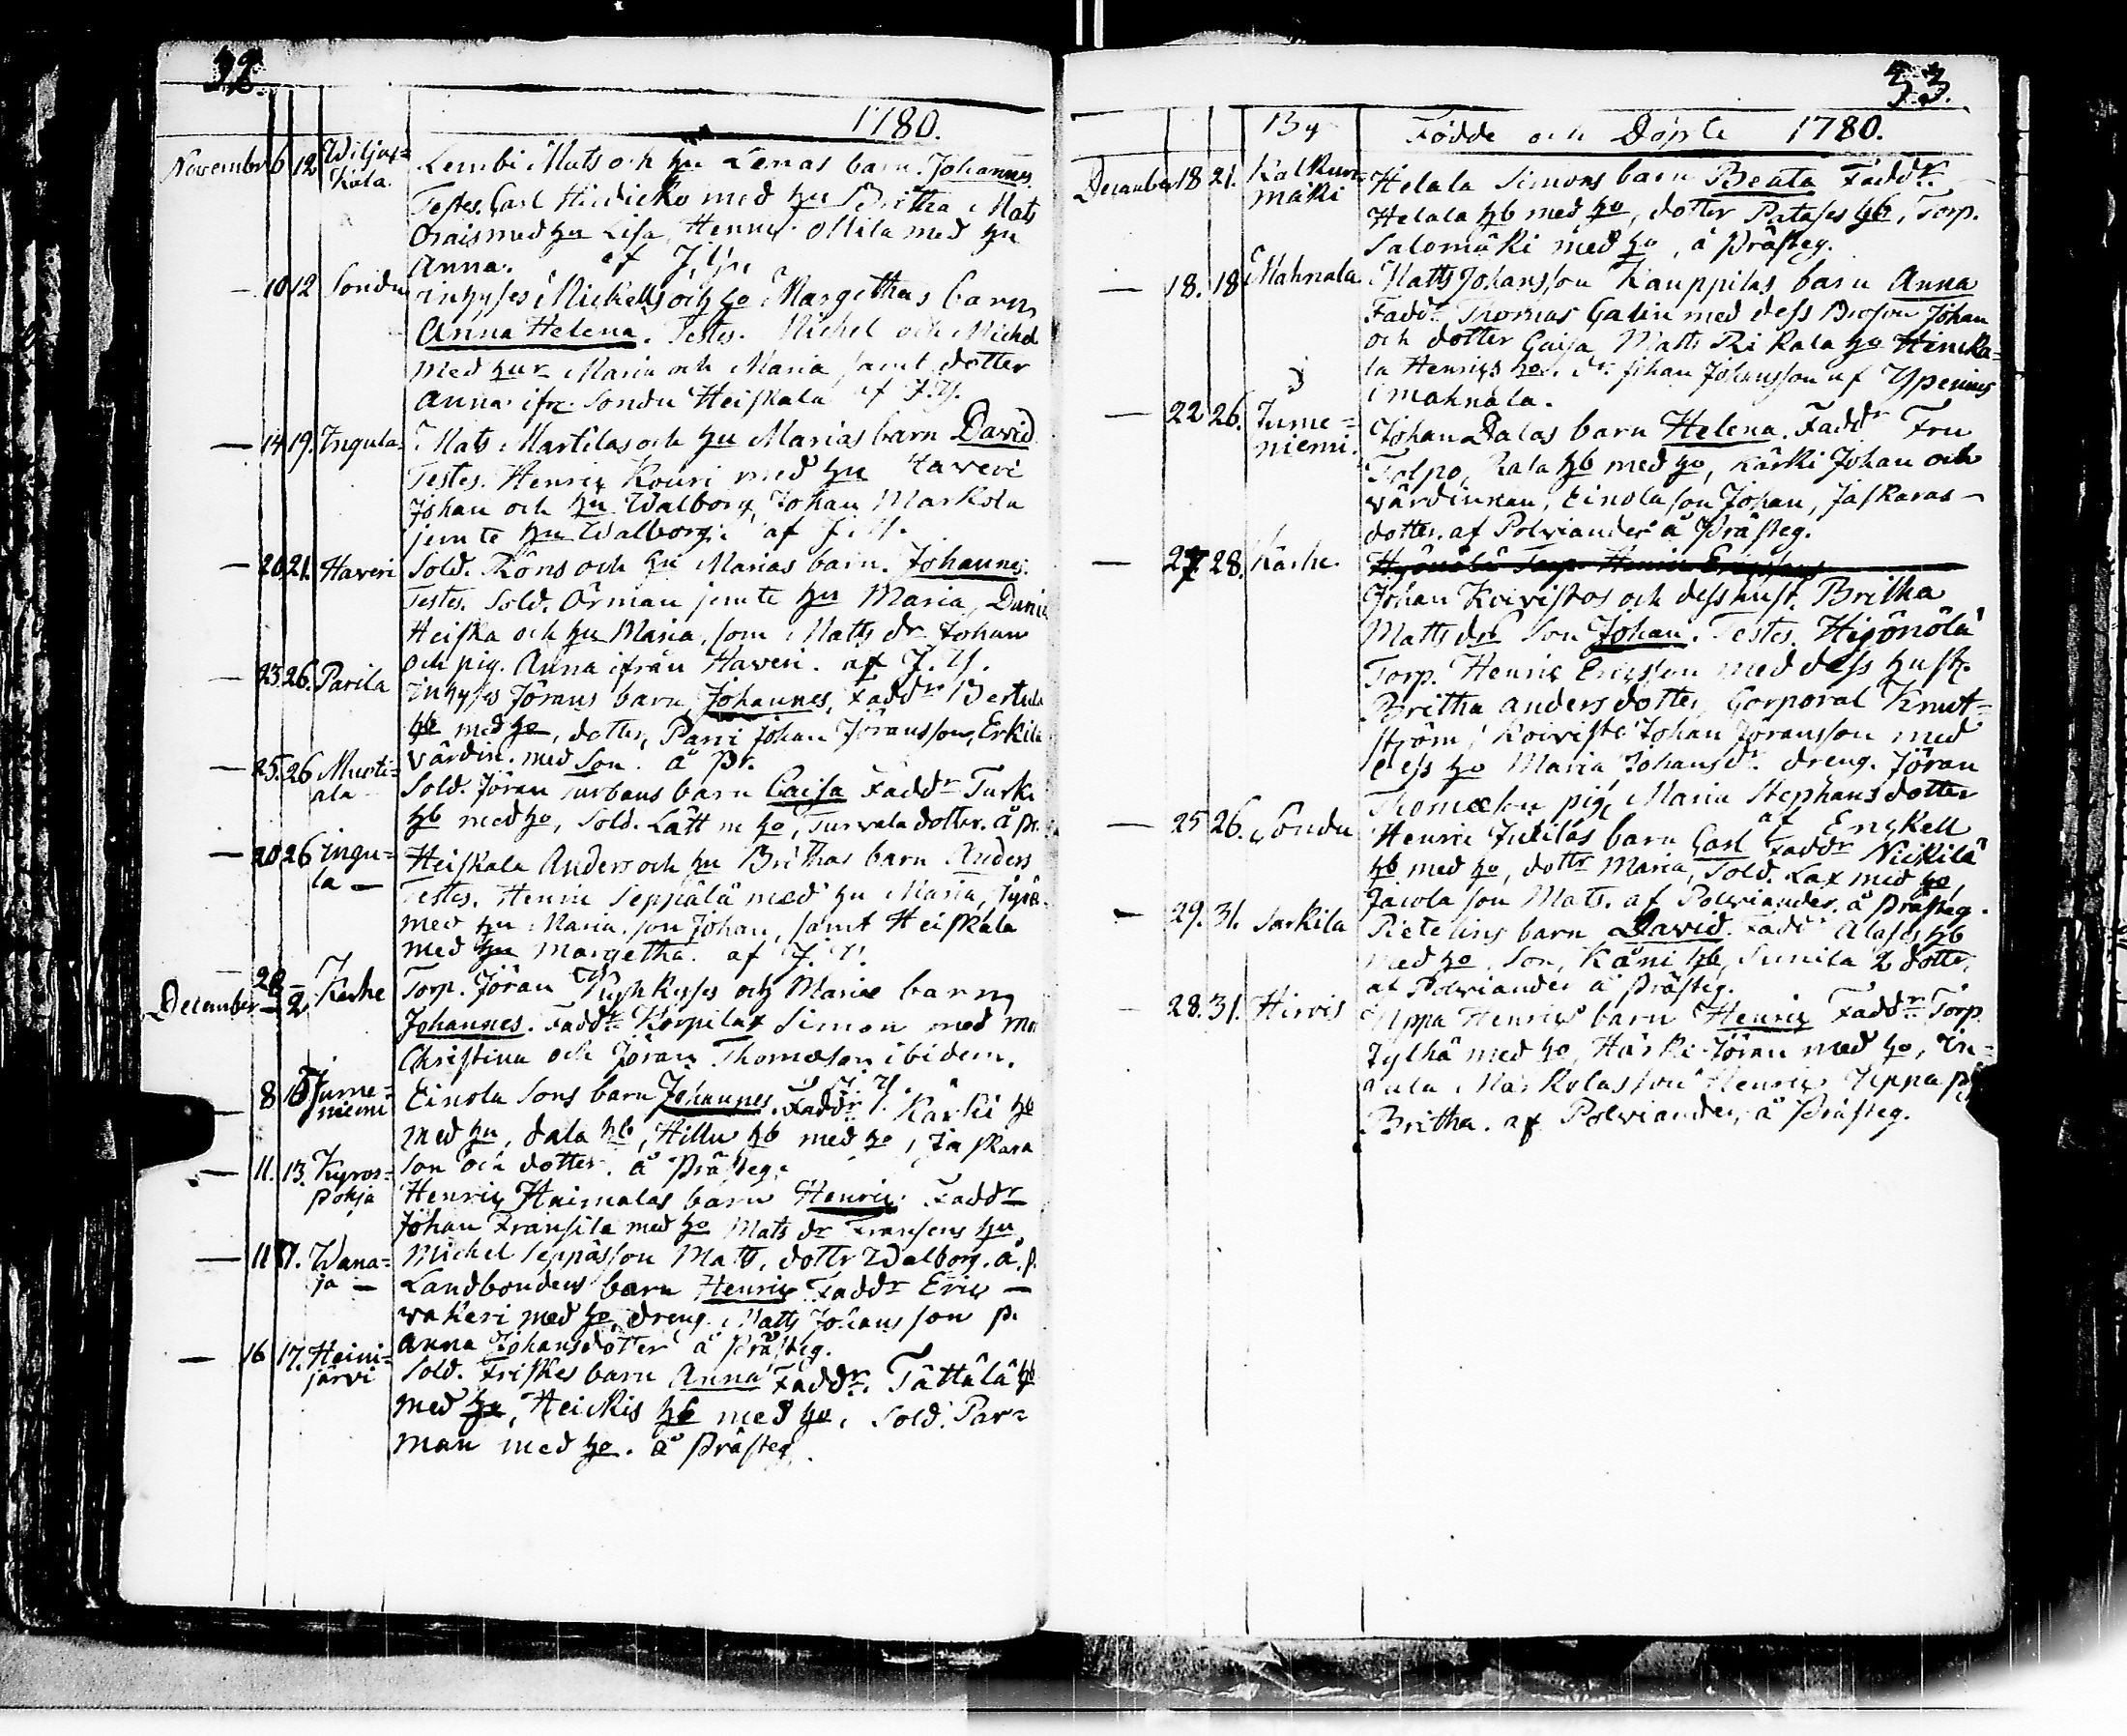 32.
1780.
Novembr 6 12 Wiljax=
kala.
Lembi Mats och hu Lenas barn. Johannes.
Testes. Carl Hirdicko med hu Britha Mats
Orais med hu Lisa, Henric Ollila med hu
Anna. af J. Y.
— 10 12 Sondu
inhyses Mickels och ho Margethas barn
Anna Helena. Testes. Michel och Michel
med hur Maria och Maria samt dotter
Anna ifr. Sondu Heiskala af J. Y.
— 14 19. Ingula
Mats Martilas och hu Marias barn David
Testes. Henric Kouri med hu Haveri
Johan och hu Walborg, Johan Markola
jemte hu Walborg. af J. Y.
— 20 21. Haveri
Sold. Röns och hu Marias barn. Johannes.
Testes. Sold. Örman jemte hu Maria, Daniel
Heiska och hu Maria, som Matts dr Johan
och pig. Anna ifrån Haveri. af J. Y.
— 23 26. Parila
inhyses Jörans barn Johannes, Faddr Bertula
hb med ho, dotter, Parri Johan Jöransson, Erkila
värdin. med Son. å Pr.
— 25. 26 Murti=
ala
Sold. Jöran urbans barn Caisa Faddr Turki
hb med ho, Sold. Lätt m ho, Turvala dotter. å Pr.
— 20 26 ingu=
la —
Heiskala Anders och hu Brithas barn Anders
Testes. Henric Seppälä med hu Maria,
med hu Maria. son Johan, samt Heiskala
med hu Margetha. af J. Y.
— 28 —
December — 2 Kerhe
Torp. Jöran Pyhkyses och Mariæ barn
Johannes. Faddr Korpilax Simon med
Christina och Jöran Thomæson ibidem.
J. Y.
— 8 10 Jume=
niemi
Einola Sons barn Johannes. Faddr Kärki hb
med hu, dala hb, Hillu hb med ho, Jaskara
son och dotter. å Prästeg.
— 11. 13. Kyros=
pohja
Henric Haimalas barn Henric. Faddr
Johan Fransila med ho Mats dr Fransens hu
Michel Seppässon Matts, dottr Walborg. å. p.
— 11 17. Wana=
ja —
Landbondens barn Henric Faddr Eric —
wakeri med ho, dreng. Matts Johansson p.
Anna Johansdotter å Prästeg.
— 16 17. Heini=
järvi
Sold. Friskes barn Anna Faddr. Tättälä hb
med ho, Heickis hb med ho. Sold. Par=
man med ho. å Prästeg.
33.
By Födde och Döpte 1780.
December 18 21. Kalkun=
mäki
Helala Simons barn Beata Faddr.
Helala hb med ho, dotter Patases hb, Torp.
Salomäki med ho, å Prästeg.
— 18. 18 Mahnala
Matts Johansson Kauppilas barn Anna
Faddr Thomas Galin med dess Broson Johan
och dotter Caisa Matts Rikala ho Hincka=
la Henrics ho. dr. Johan Johansson af Ypenius
i mahnala.
— 22 26. Jume=
niemi.
Johan Dalas barn Helena. Faddr Fru
Tolpo, Rala hb med ho, Kärki Johan och
värdinnan, Einola son Johan, Jaskaras —
dotter. af Polviander å Prästeg.
— 27 28. Kärhe.
Hyönölä Torp. Henric Ericsson
Johan Koivistos och dess hust. Britha
Matts dr Son Johan. Testes. Hyönölä
Torp. Henric Ericsson med dess hust.
Britha Anders dotter, Corporal Knut=
ström, Koivisto Johan Jöransson med
dess ho Maria Johansdr. dreng. Jöran
Thomæson pig. Maria Stephans dotter
af Enckell
— 25 26. Sondu
Henric Jutilas barn Carl Faddr Nickilä
hb med ho, dottr Maria, Sold. Lax med ho,
Jacola son Mats. af Polviander. å Prästeg.
— 29. 31. Sarkila
Pietelins barn David. Faddr Alases hb
med ho. Son, Käni hb, Sunila 2 dottr.
af Polviander å Prästeg.
— 28. 31. Hirvis
Uppa Henrics barn Henric Faddr Torp.
Jylhä med ho, Härki Jöran med ho, In=
gula Markolas son Henric Uppa p.
Britha. af Polviander, å Prästeg.